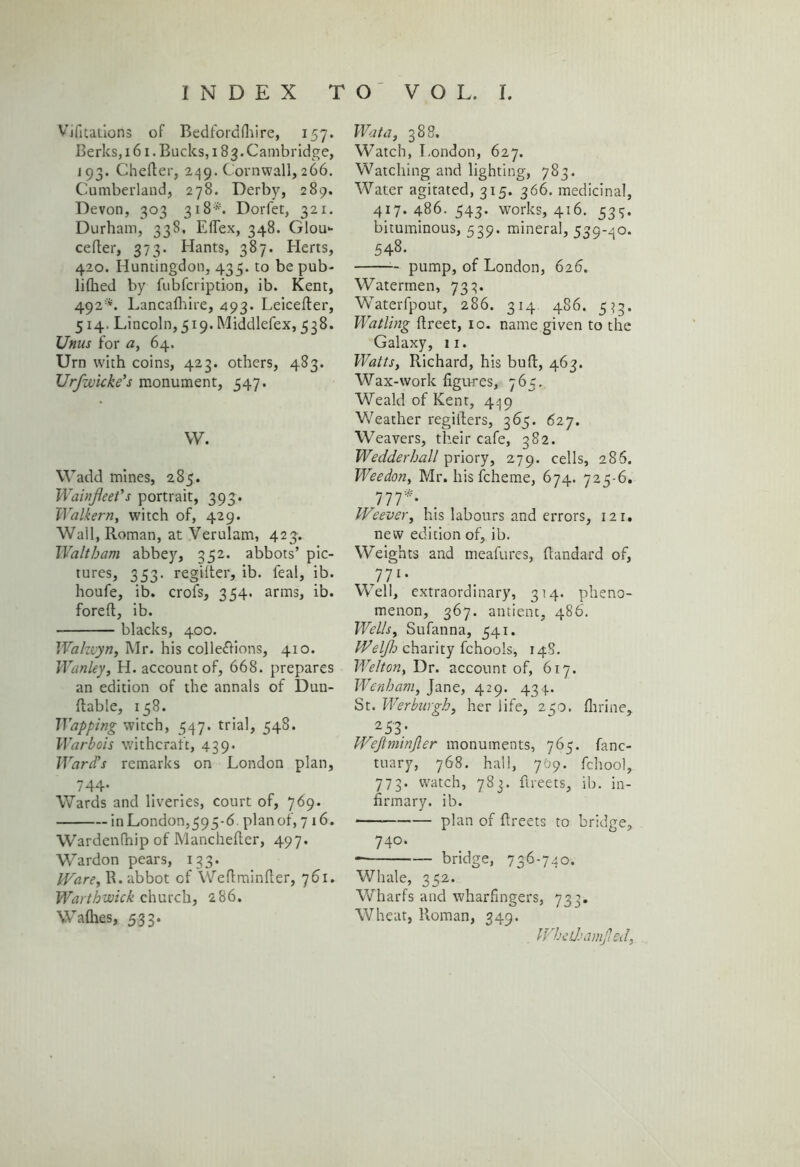 INDEX TO VOL. I.
Viſitations of Bedfordſhire, 157.
Berks, 161. Bucks, 183. Cambridge,
193. Cheſter, 249. Cornwall, 266.
Cumberland, 278. Derby, 289.
Devon, 303 318*. Dorſet, 321.
Durham, 338. Eſſex, 348. Glou-
ceſter, 373. Hants, 387. Herts,
420. Huntingdon, 435. to be pub-
liſhed by ſubſcription, ib. Kent,
492*. Lancaſhire, 493. Leiceſter,
514. Lincoln, 519. Middleſex, 538.
Unus for a, 64.
Urn with coins, 423. others, 483.
Urſwicke's monument, 547.
W.
Wadd mines, 285.
Wainfleet's portrait, 393.
Walkern, witch of, 429.
Wall, Roman, at Verulam, 423.
Waltham abbey, 352. abbots' pic-
tures, 353. regiſter, ib. ſeal, ib.
houſe, ib. croſs, 354. arms, ib.
foreſt, ib.
——— blacks, 400.
Walwyn, Mr. his collections, 410.
Wanley, H. account of, 668. prepares
an edition of the annals of Dun-
ſtable, 158.
Wapping witch, 547. trial, 548.
Warbois withcraft, 439.
Ward's remarks on London plan,
744.
Wards and liveries, court of, 769.
——— in London, 595-6. plan of, 716.
Wardenſhip of Mancheſter, 497.
Wardon pears, 133.
Ware, R. abbot of Weſtminſter, 761.
Warthwick church, 286.
Waſhes, 533.
Wata, 388.
Watch, London, 627.
Watching and lighting, 783.
Water agitated, 315. 366. medicinal,
417. 486. 543. works, 416. 535.
bituminous, 539. mineral, 539-40.
548.
——— pump, of London, 626.
Watermen, 733.
Waterſpout, 286. 314 486. 533.
Watling ſtreet, 10. name given to the
Galaxy, 11.
Watts, Richard, his buſt, 463.
Wax-work figures, 765.
Weald of Kent, 449
Weather regiſters, 365. 627.
Weavers, their caſe, 382.
Wedderhall priory, 279. cells, 286.
Weedon, Mr. his ſcheme, 674. 725-6.
777*.
Weever, his labours and errors, 121.
new edition of, ib.
Weights and meaſures, ſtandard of,
771.
Well, extraordinary, 314. pheno-
menon, 367. antient, 486.
Wells, Suſanna, 541.
Welſh charity ſchools, 148.
Welton, Dr. account of, 617.
Wenham, Jane, 429. 434.
St. Werburgh, her life, 250. ſhrine,
253.
Weſtminſter monuments, 765. ſanc-
tuary, 768. hall, 769. ſchool,
773. watch, 783. ſtreets, ib. in-
firmary. ib.
——— plan of ſtreets to bridge,
740.
——— bridge, 736-740.
Whale, 352.
Wharfs and wharfingers, 733.
Wheat, Roman, 349.
Whethamſted,